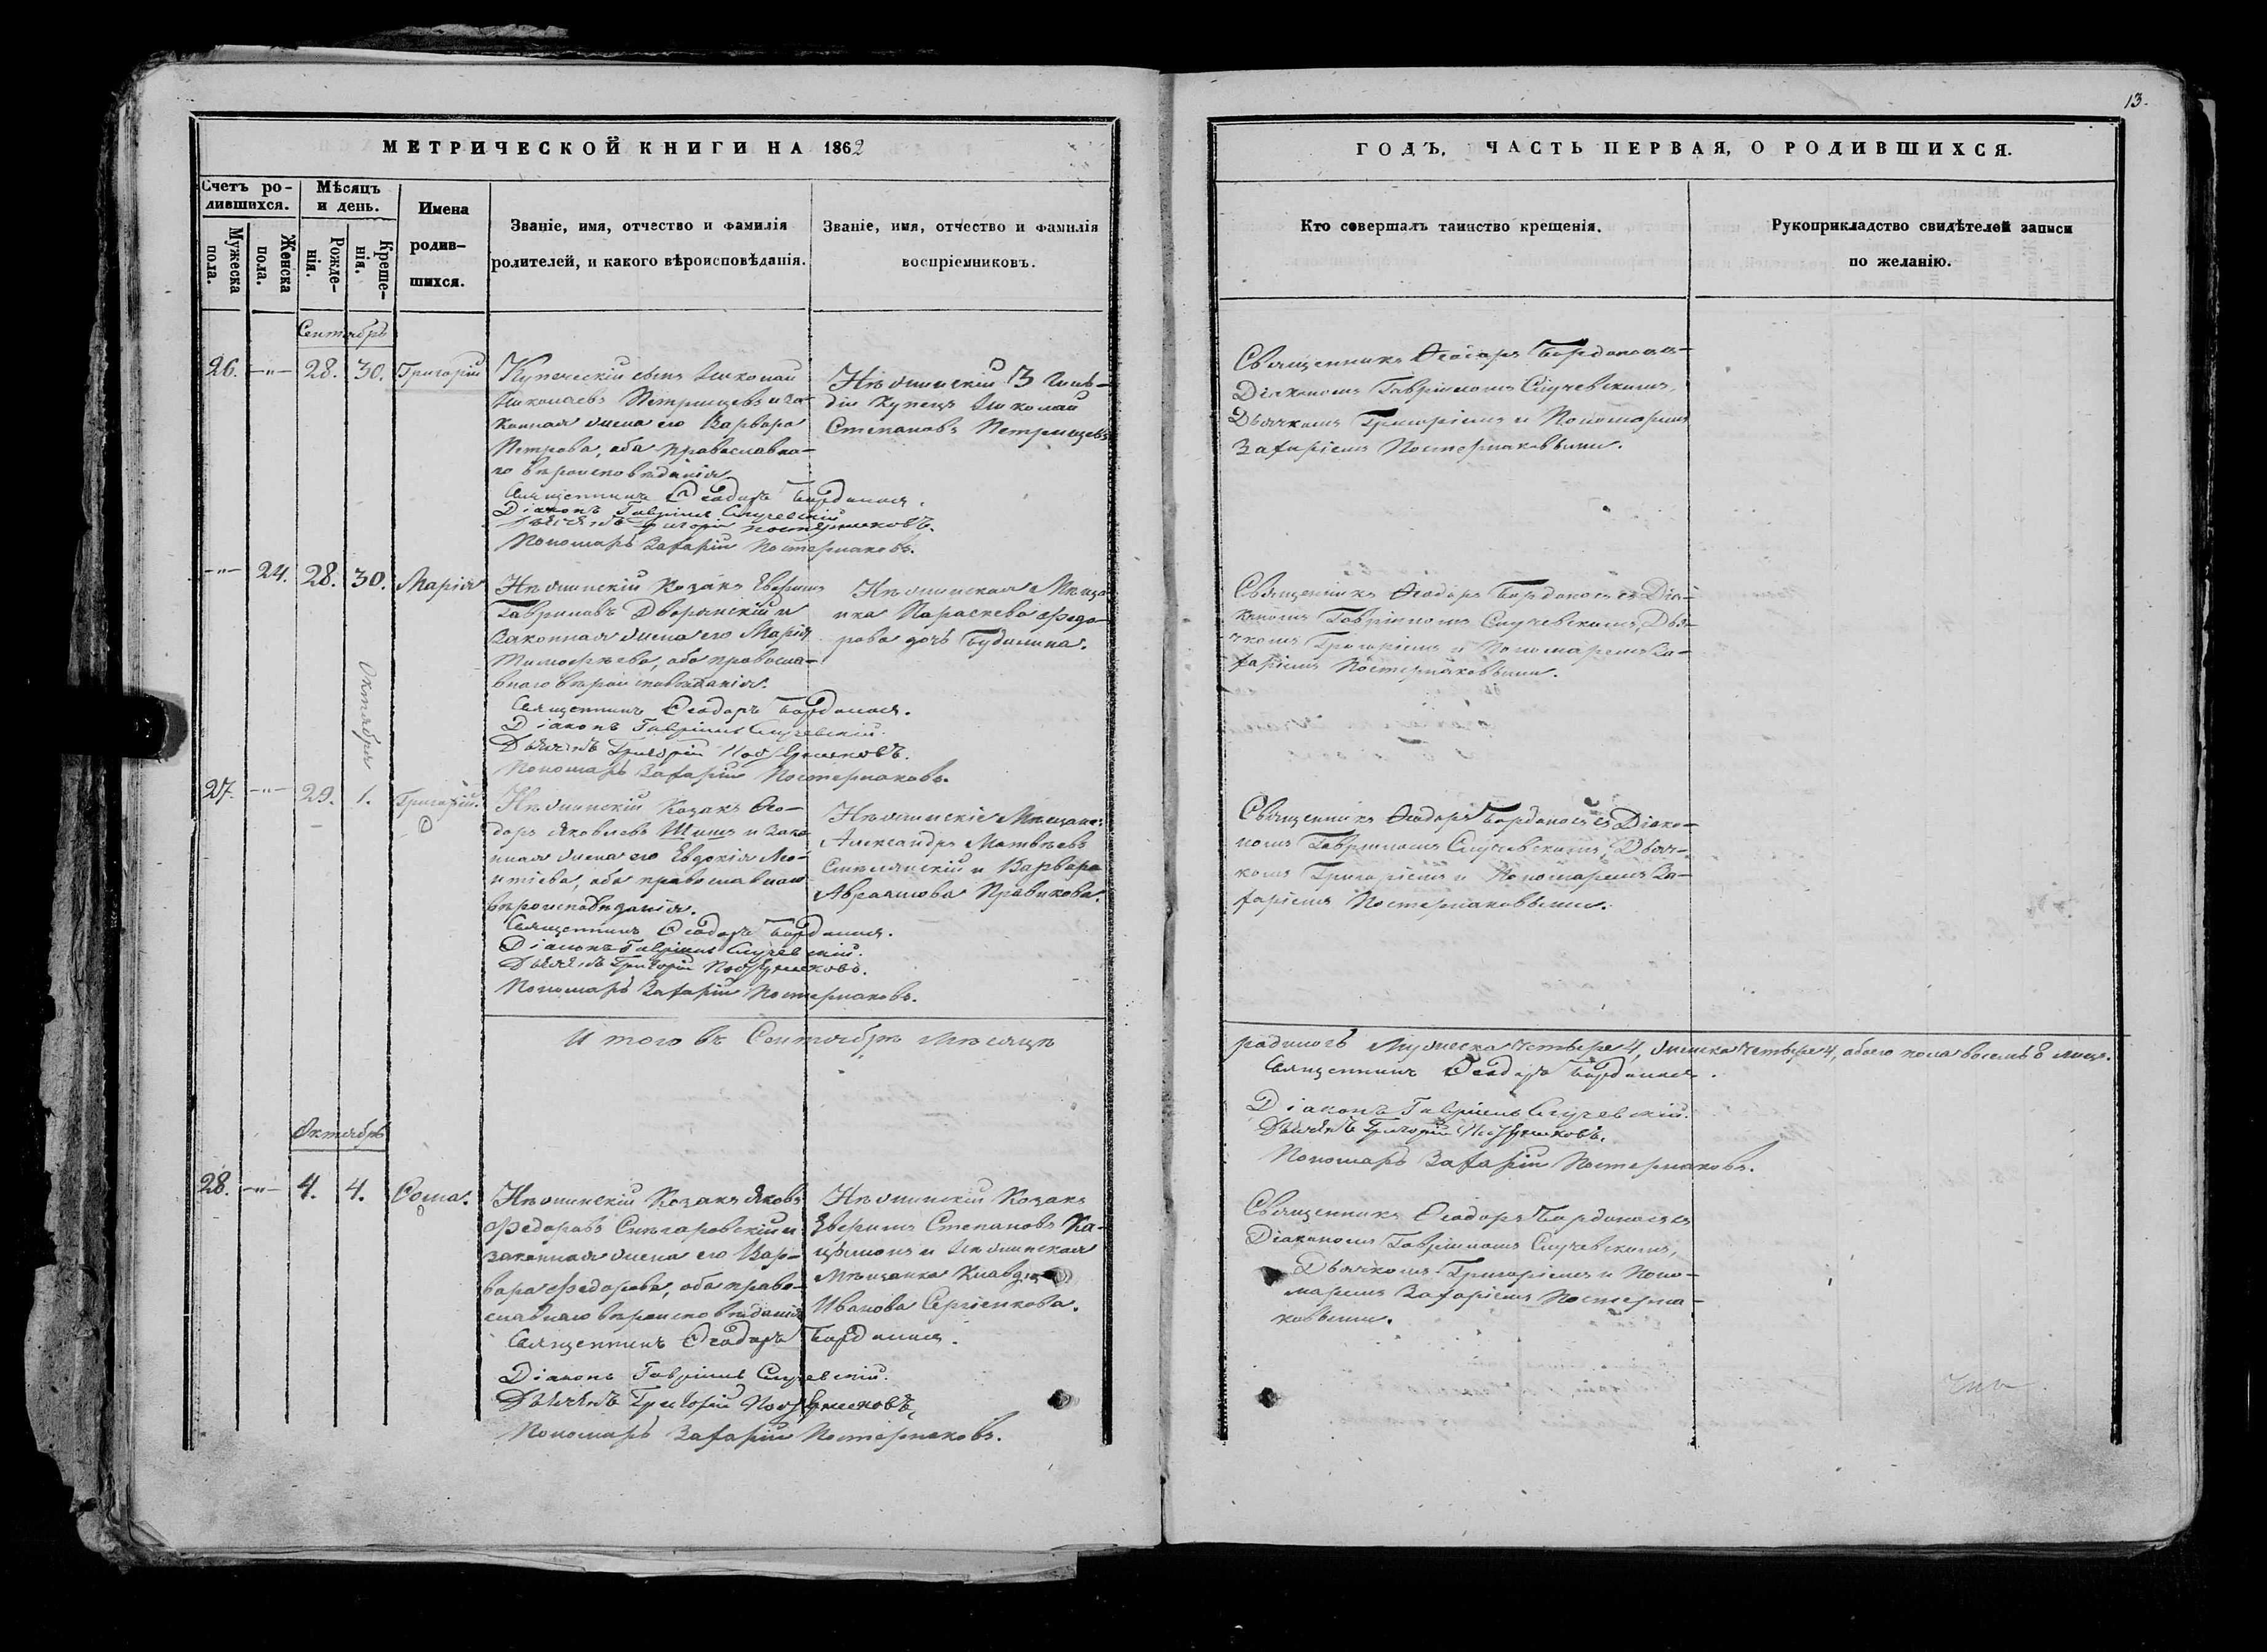 13.
МЕТРИЧЕСКОЙ КНИГИ НА 1862
Счетъ ро-
дившихся.
Мужеска
пола.
Женска
пола.
Мѣсяцъ
и день.
Рожде-
нія.
Креще-
нія.
Имена
родив-
шихся.
Званіе, имя, отчество и фамилія
родителей, и какого вѣроисповѣданія.
Званіе, имя, отчество и фамилія
воспріемниковъ.
ГОДЪ, ЧАСТЬ ПЕРВАЯ, О РОДИВШИХСЯ.
Кто совершалъ таинство крещенія.
Рукоприкладство свидѣтелей записи
по желанію.
Сентябрь
26. -"- 28. 30. Григорій
Купеческій сынъ Николай
Николаевъ Петрищевъ и за-
конная жена его Варвара
Петрова, оба православна-
го вѣроисповѣданія
Священникъ Ѳеодоръ
Діаконъ Гавріилъ Случевскій
Дьячекъ Григорій Постернаковъ.
Пономарь Захарій Постернаковъ.
Нѣжинскій 3 гиль-
діи Купецъ Николай
Степановъ Петрищевъ
Священникъ Ѳеодоръ
Діакономъ Гавріиломъ Случевскимъ,
Дьячкомъ Григоріемъ и Пономаремъ
Захаріемъ Постернаковыми.
-"- 24. 28. 30. Марія
Нѣжинскій Козакъ
Гавриловъ Дворянскій и
Законная жена его Марія
Тимофѣева, оба правосла-
внаго вѣроисповѣданія.
Священникъ Ѳеодоръ
Діаконъ Гавріилъ Случевскій.
Дьячекъ Григорій Постернаковъ.
Пономарь Захарій Постернаковъ.
Нѣжинская Мѣща-
нка Параскева Федо-
рова дочь
Священникъ Ѳеодоръ съ Діа-
кономъ Гавріиломъ Случевскимъ, Дья-
чкомъ Григоріемъ и Пономаремъ За-
харіемъ Постернаковыми.
Октября
27. -"- 29. 1. Григорій.
Нѣжинскій Козакъ Ѳео-
доръ Яковлевъ Шишъ и Зако-
нная жена его Евдокія
оба православнаго
вѣроисповѣданія.
Священникъ Ѳеодоръ
Діаконъ Гавріилъ Случевскій.
Дьячекъ Григорій Постернаковъ.
Пономарь Захарій Постернаковъ.
Нѣжинскіе Мѣщане:
Александръ Матвѣевъ
и Варвара
Авраамова
Священникъ Ѳеодоръ съ Діако-
номъ Гавріиломъ Случевскимъ, Дьяч-
комъ Григоріемъ и Пономаремъ За-
харіемъ Постернаковыми.
И того въ Сентябрѣ Мѣсяцѣ
родилось Мужеска четыре 4, женска четыре 4, обоего пола восемь 8 лицъ.
Священникъ Ѳеодоръ
Діаконъ Гавріилъ Случевскій.
Дьячекъ Григорій Постернаковъ.
Пономарь Захарій Постернаковъ.
Октябрь
28. -"- 4. 4. Ѳома.
Нѣжинскій Козакъ Яковъ
Федоровъ и
законная жена его Вар-
вара Федорова, оба право-
славнаго вѣроисповѣданія
Священникъ Ѳеодоръ
Діаконъ Гавріилъ Случевскій.
Дьячекъ Григорій Постернаковъ,
Пономарь Захарій Постернаковъ.
Нѣжинскій Козакъ
Степановъ
и Нѣжинская
Мѣщанка
Иванова Сергіенкова.
Священникъ Ѳеодоръ съ
Діакономъ Гавріиломъ Случевскимъ,
Дьячкомъ Григоріемъ и Поно-
маремъ Захаріемъ Постерна-
ковыми.